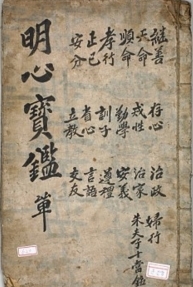 継善 存心 治政 婦行
天命 戒性 治家 朱夫子十
順命 勤學 安義
孝行 訓子 遵禮
正己 省心 言語
安分 立教 交友
明心寶鑑 單